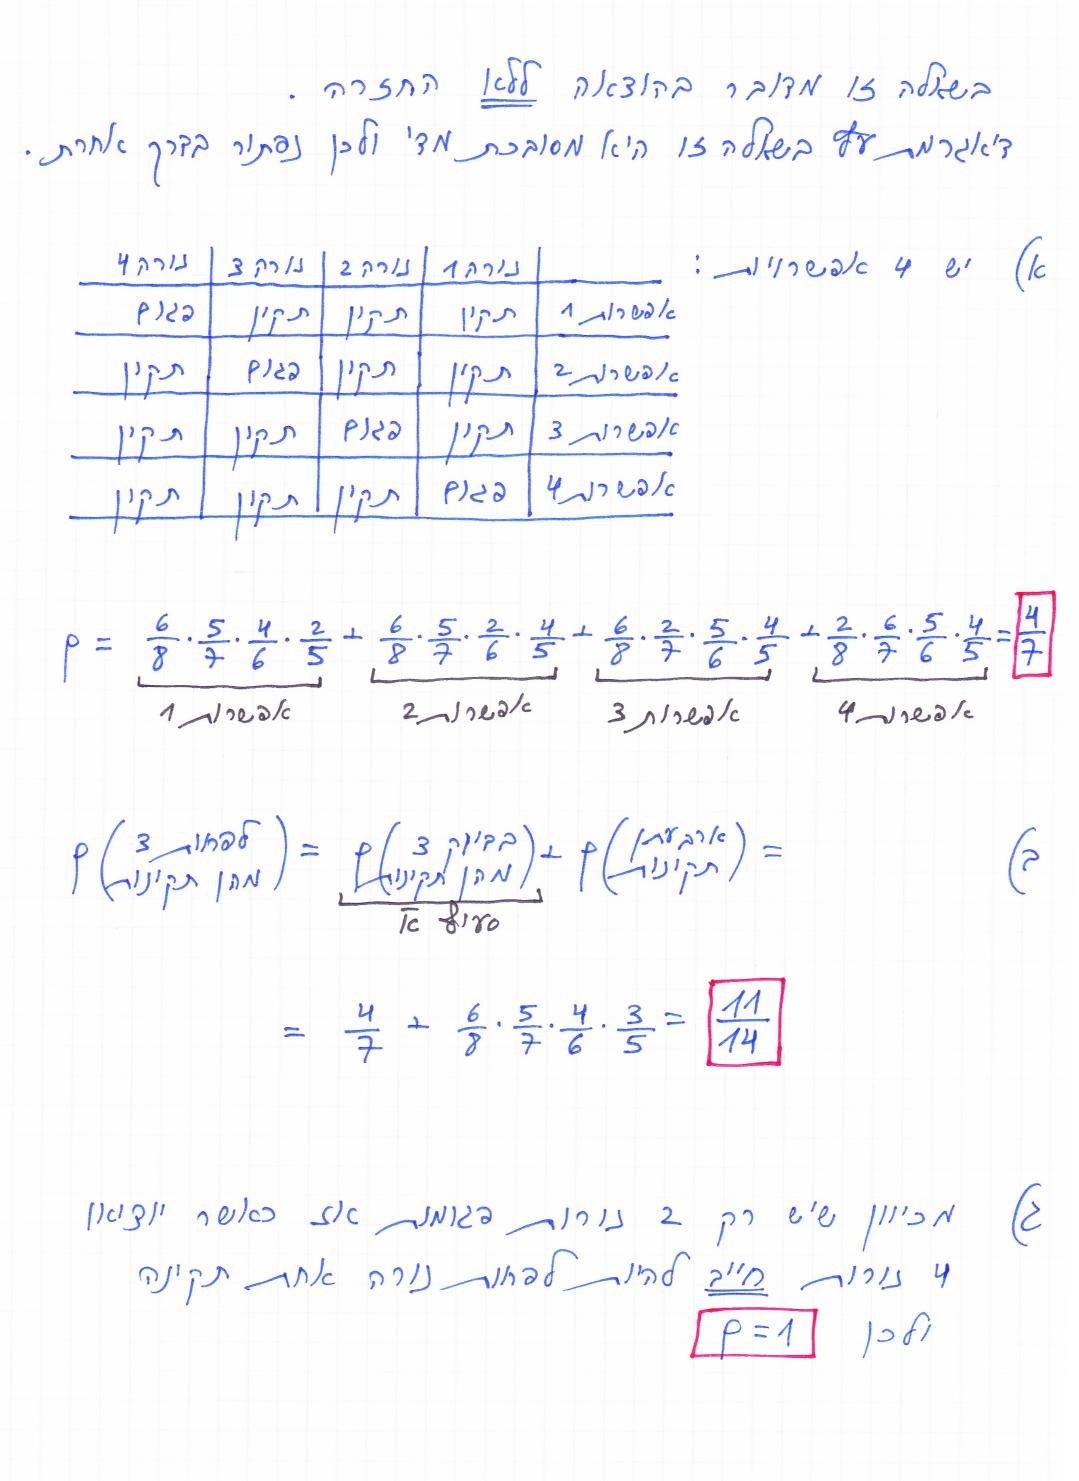 בשאלה זו מדובר בהוצאה ללא החזרה.
דיאגרמת עץ בשאלה זו היא מסובכת מדי ולכן נפתור בדרך אחרת.
א) יש 4 אפשרויות:
נורה 1 | נורה 2 | נורה 3 | נורה 4
אפשרות 1 | תקין | תקין | תקין | פגום
אפשרות 2 | תקין | תקין | פגום | תקין
אפשרות 3 | תקין | פגום | תקין | תקין
אפשרות 4 | פגום | תקין | תקין | תקין
P = 6/8 · 5/7 · 4/6 · 2/5 + 6/8 · 5/7 · 2/6 · 4/5 + 6/8 · 2/7 · 5/6 · 4/5 + 2/8 · 6/7 · 5/6 · 4/5 = 4/7
אפשרות 1 אפשרות 2 אפשרות 3 אפשרות 4
ב) P(לפחות 3 מהן תקינות) = P(בדיוק 3 מהן תקינות) + P(ארבעתן תקינות) =
סעיף א
= 4/7 + 6/8 · 5/7 · 4/6 · 3/5 = 11/14
ג) מכיוון שיש רק 2 נורות פגומות אז כאשר יוציאו
4 נורות חייב להיות לפחות נורה אחת תקינה
ולכן P=1